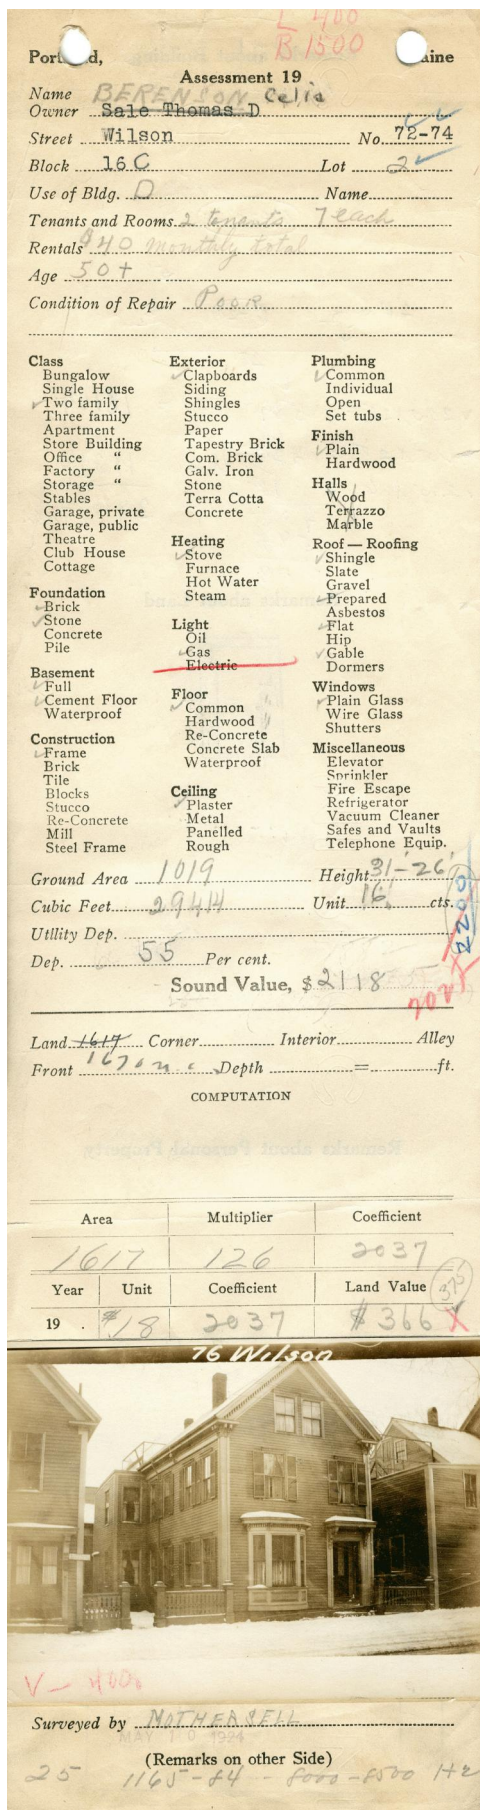 L 400
B 1500
Portland, Maine
Assessment 19
Name BERENSON Celia
Owner Sale Thomas D
Street Wilson No. 72-74
Block 16 C Lot 2
Use of Bldg. D Name
Tenants and Rooms 2 tenants 7 each
Rentals $40 monthly total
Age 50+
Condition of Repair Poor
Class
Bungalow
Single House
Two family
Three family
Apartment
Store Building
Office "
Factory "
Storage "
Stables
Garage, private
Garage, public
Theatre
Club House
Cottage
Foundation
Brick
Stone
Concrete
Pile
Basement
Full
Cement Floor
Waterproof
Construction
Frame
Brick
Tile
Blocks
Stucco
Re-Concrete
Mill
Steel Frame
Exterior
Clapboards
Siding
Shingles
Stucco
Paper
Tapestry Brick
Com. Brick
Galv. Iron
Stone
Terra Cotta
Concrete
Heating
Stove
Furnace
Hot Water
Steam
Light
Oil
Gas
Electric
Floor
Common
Hardwood
Re-Concrete
Concrete Slab
Waterproof
Ceiling
Plaster
Metal
Panelled
Rough
Plumbing
Common
Individual
Open
Set tubs
Finish
Plain
Hardwood
Halls
Wood
Terrazzo
Marble
Roof — Roofing
Shingle
Slate
Gravel
Prepared
Asbestos
Flat
Hip
Gable
Dormers
Windows
Plain Glass
Wire Glass
Shutters
Miscellaneous
Elevator
Sprinkler
Fire Escape
Refrigerator
Vacuum Cleaner
Safes and Vaults
Telephone Equip.
Ground Area 1019 Height 31'-26'
Cubic Feet 29414 Unit 16 cts.
2200
Utility Dep.
Dep. 55 Per cent.
Sound Value, $2118
Land 1617 Corner Interior Alley
Front Depth = ft.
COMPUTATION
Area Multiplier Coefficient
1617 126 2037
Year Unit Coefficient Land Value 375
19 . $.18 2037 $366 X
76 Wilson
V - 400
Surveyed by MOTHERSELL
MAY 10 1924
(Remarks on other Side)
25 1165-84 - 8000-8500